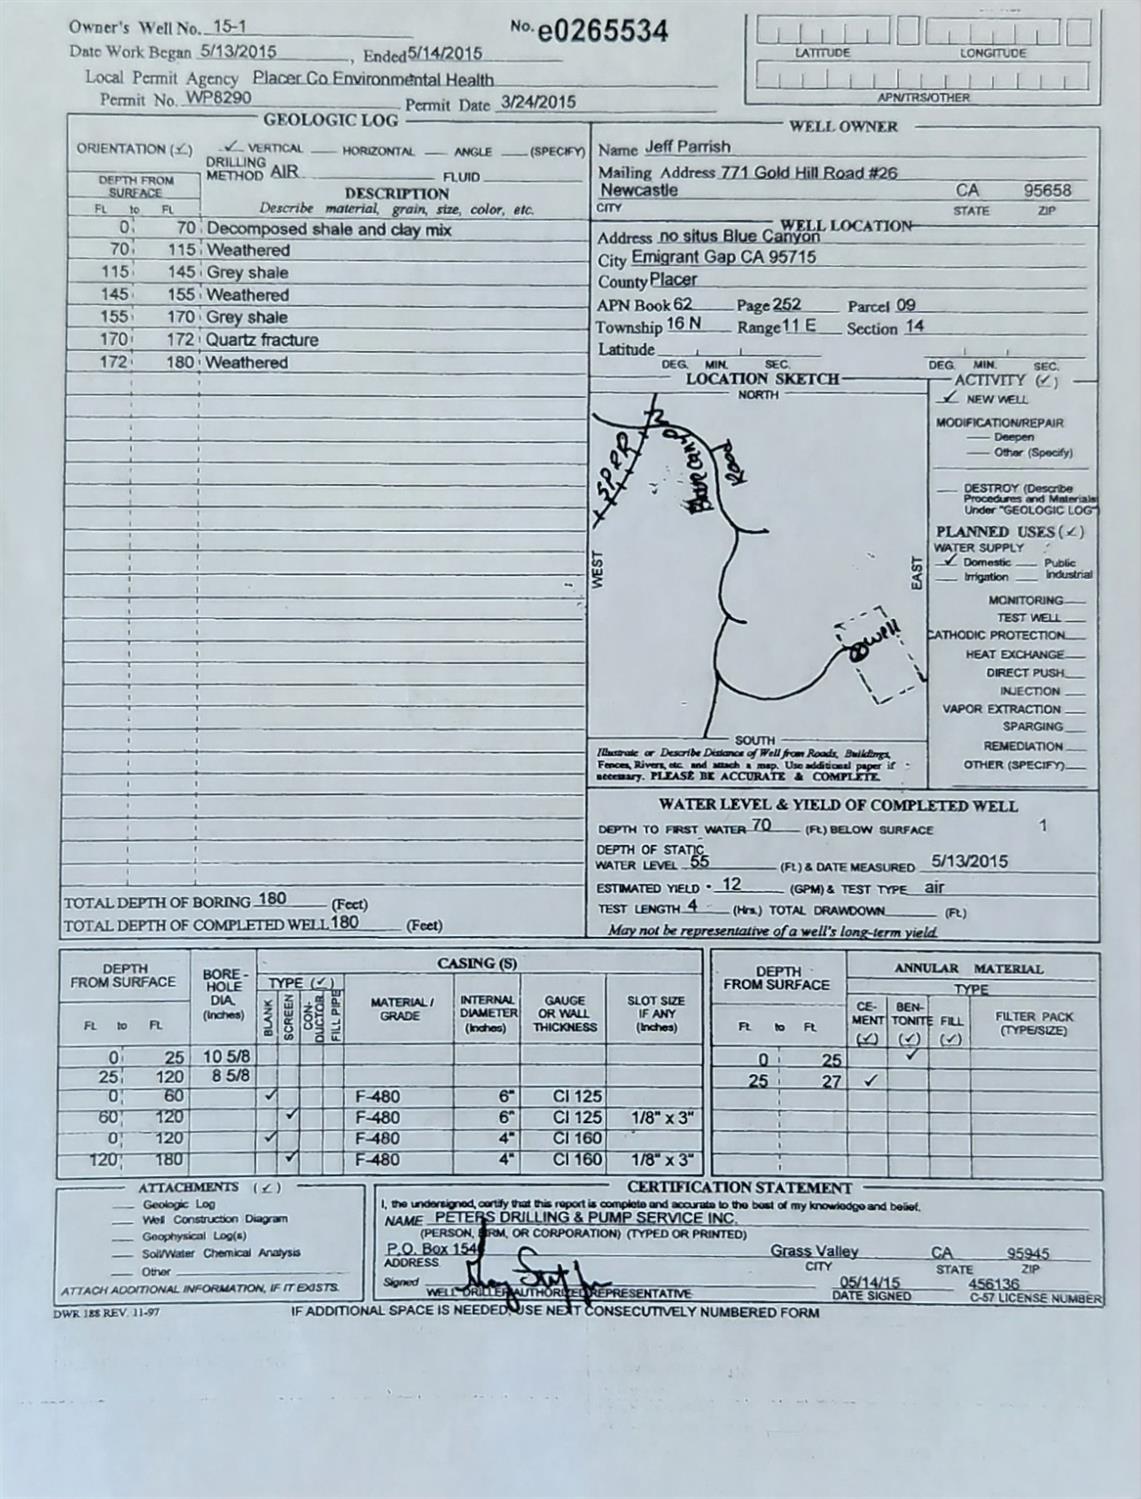 Owner's Well No. 15-1
No. e0265534
Date Work Began 5/13/2015, Ended 5/14/2015
Local Permit Agency Placer Co Environmental Health
Permit No. WP8290 Permit Date 3/24/2015
LATITUDE LONGITUDE
APN/TRS/OTHER
GEOLOGIC LOG
ORIENTATION (✓) ✓ VERTICAL HORIZONTAL ANGLE (SPECIFY)
DRILLING METHOD AIR FLUID
DEPTH FROM SURFACE
Ft. to Ft.
DESCRIPTION
Describe material, grain, size, color, etc.
0 70 Decomposed shale and clay mix
70 115 Weathered
115 145 Grey shale
145 155 Weathered
155 170 Grey shale
170 172 Quartz fracture
172 180 Weathered
TOTAL DEPTH OF BORING 180 (Feet)
TOTAL DEPTH OF COMPLETED WELL 180 (Feet)
WELL OWNER
Name Jeff Parrish
Mailing Address 771 Gold Hill Road #26
Newcastle CA 95658
CITY STATE ZIP
WELL LOCATION
Address no situs Blue Canyon
City Emigrant Gap CA 95715
County Placer
APN Book 62 Page 252 Parcel 09
Township 16 N Range 11 E Section 14
Latitude
DEG. MIN. SEC. DEG. MIN. SEC.
LOCATION SKETCH
NORTH
SPRR
Road
WEST
EAST
Well
SOUTH
Illustrate or Describe Distance of Well from Roads, Buildings,
Fences, Rivers, etc. and attach a map. Use additional paper if
necessary. PLEASE BE ACCURATE & COMPLETE.
ACTIVITY (✓)
✓ NEW WELL
MODIFICATION/REPAIR
Deepen
Other (Specify)
DESTROY (Describe
Procedures and Materials
Under "GEOLOGIC LOG")
PLANNED USES (✓)
WATER SUPPLY
✓ Domestic Public
Irrigation Industrial
MONITORING
TEST WELL
CATHODIC PROTECTION
HEAT EXCHANGE
DIRECT PUSH
INJECTION
VAPOR EXTRACTION
SPARGING
REMEDIATION
OTHER (SPECIFY)
WATER LEVEL & YIELD OF COMPLETED WELL
DEPTH TO FIRST WATER 70 (Ft.) BELOW SURFACE 1
DEPTH OF STATIC
WATER LEVEL 55 (Ft.) & DATE MEASURED 5/13/2015
ESTIMATED YIELD • 12 (GPM) & TEST TYPE air
TEST LENGTH 4 (Hrs.) TOTAL DRAWDOWN (Ft.)
May not be representative of a well's long-term yield.
DEPTH FROM SURFACE
Ft. to Ft.
BORE-HOLE DIA. (Inches)
CASING (S)
TYPE (✓)
BLANK SCREEN CON-DUCTOR FILL PIPE
MATERIAL / GRADE
INTERNAL DIAMETER (Inches)
GAUGE OR WALL THICKNESS
SLOT SIZE IF ANY (Inches)
0 25 10 5/8
25 120 8 5/8
0 60 ✓ F-480 6" Cl 125
60 120 ✓ F-480 6" Cl 125 1/8" x 3"
0 120 ✓ F-480 4" Cl 160
120 180 ✓ F-480 4" Cl 160 1/8" x 3"
DEPTH FROM SURFACE
Ft. to Ft.
ANNULAR MATERIAL
TYPE
CE-MENT (✓) BEN-TONITE (✓) FILL (✓) FILTER PACK (TYPE/SIZE)
0 25 ✓
25 27 ✓
ATTACHMENTS (✓)
Geologic Log
Well Construction Diagram
Geophysical Log(s)
Soil/Water Chemical Analysis
Other
ATTACH ADDITIONAL INFORMATION, IF IT EXISTS.
CERTIFICATION STATEMENT
I, the undersigned, certify that this report is complete and accurate to the best of my knowledge and belief.
NAME PETERS DRILLING & PUMP SERVICE INC.
(PERSON, FIRM, OR CORPORATION) (TYPED OR PRINTED)
P.O. Box 154 Grass Valley CA 95945
ADDRESS CITY STATE ZIP
Signed 05/14/15 456136
WELL DRILLER/AUTHORIZED REPRESENTATIVE DATE SIGNED C-57 LICENSE NUMBER
DWR 188 REV. 11-97
IF ADDITIONAL SPACE IS NEEDED, USE NEXT CONSECUTIVELY NUMBERED FORM